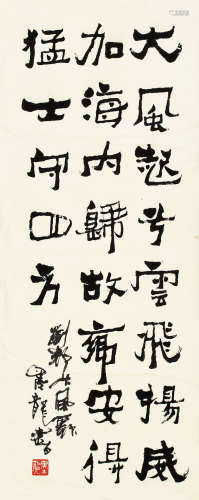 大風起兮雲飛揚威
加海内歸故鄉安得
猛士守四方
劉邦大風歌